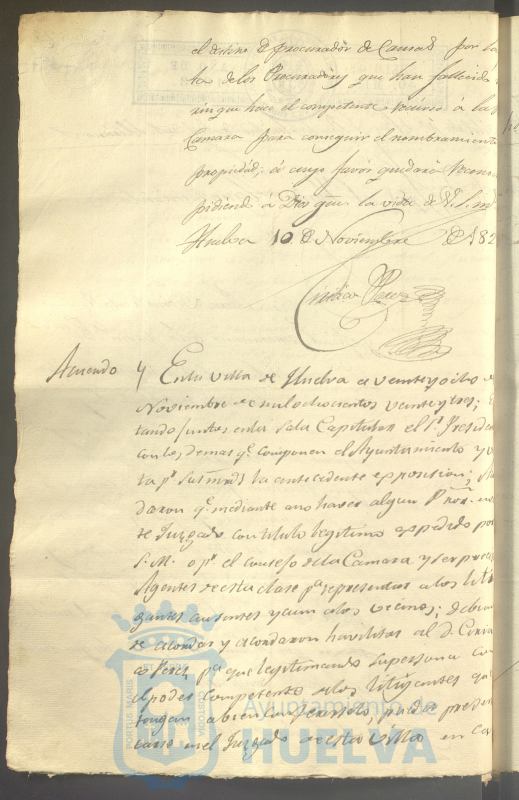 el destino de procurador de Causas por
ta de los Procuradores que han fallecido
rin que hace el competente recurso á la
Camara para conseguir el nombramiento
propiedad; á cuyo favor quedará recono
pidiendo á Dios gue. la vida de V.S. m
Huelva 10 de Noviembre de 182
Ciriaco Perez
Acuerdo En la villa de Huelva a veinte y ocho de
Noviembre de mil ochocientos veinte y tres; Es
tando juntos en la Sala Capitular el Sr. Preside
con los demas qe. componen el Ayuntamiento y v
ta pr. sus mrds. la antecedente exposicion; A
daron qe. mediante a no haver algun Pror. en
te Juzgado con titulo legitimo expedido por
S.M. o pr. el consejo de la Camara y ser preci
Agentes de esta clase pa. representar a los liti
gantes ausentes y aun a los vecinos; debian
de acordar y acordaron havilitar al D. Ciria
co Perez pa. que legitimando su persona con
el poder competente de los litigantes que
tengan a bien conferirselo, pueda presen
tarse en el Juzgado de esta Villa en ca
PORTUS MARIS ET TERRAE CUSTODIA
Ayuntamiento de
HUELVA